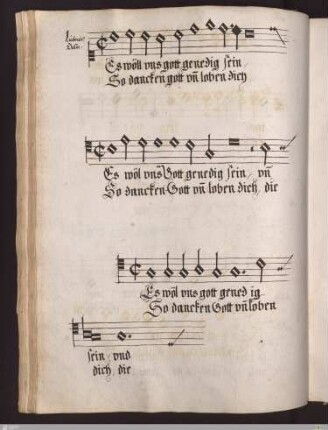 Es wöll vns gott genedig sein
So dancken gott vñ loben dich
Es wöl vns Gott genedig sein, vñ
So dancken Gott vñ loben dich, die
Es wöl vns gott gened ig
So dancken Gott vñ loben
sein, vnd
dich, die